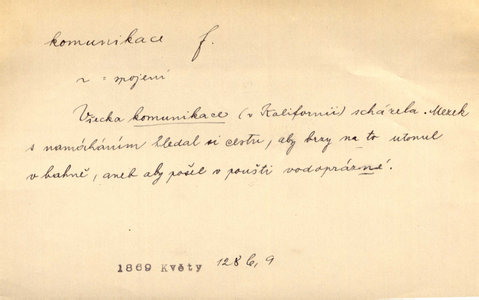 komunikace f.
v = spojení
Všecka komunikace (v Kalifornii) scházela. Mezek
s namáháním hledal si cestu, aby brzy na to utonul
v bahně, aneb aby pošel v poušti vodoprázné.
1869 Květy 128 b, 9